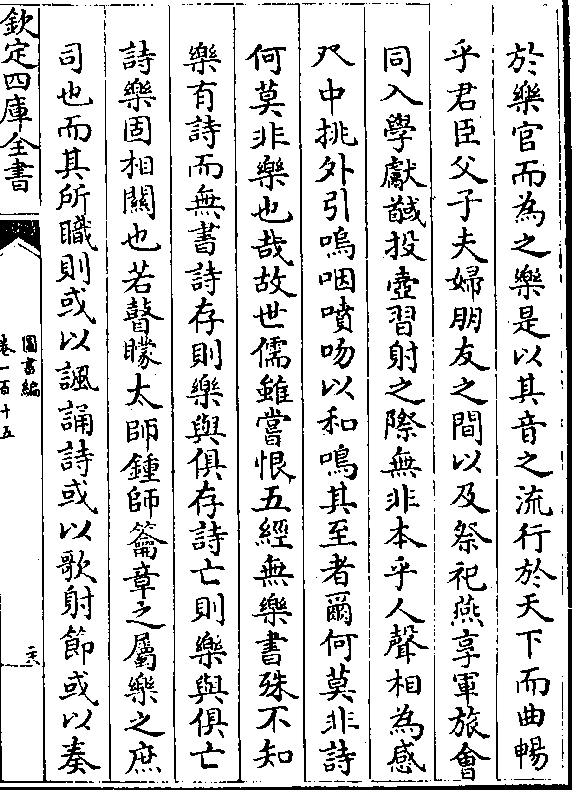 於樂官而為之樂是以其音之流行於天下而曲暢
乎君臣父子夫婦朋友之間以及祭祀燕享軍旅會
同入學獻馘投壺習射之際無非本乎人聲相為感
尺中挑外引嗚咽噴吻以和鳴其至者爾何莫非詩
何莫非樂也哉故世儒雖嘗恨五經無樂書殊不知
樂有詩而無書詩存則樂與俱存詩亡則樂與俱亡
詩樂固相關也若瞽矇太師鍾師籥章之屬樂之庶
司也而其所職則或以諷誦詩或以歌射節或以奏
欽定四庫全書
圖書編
卷一百十五